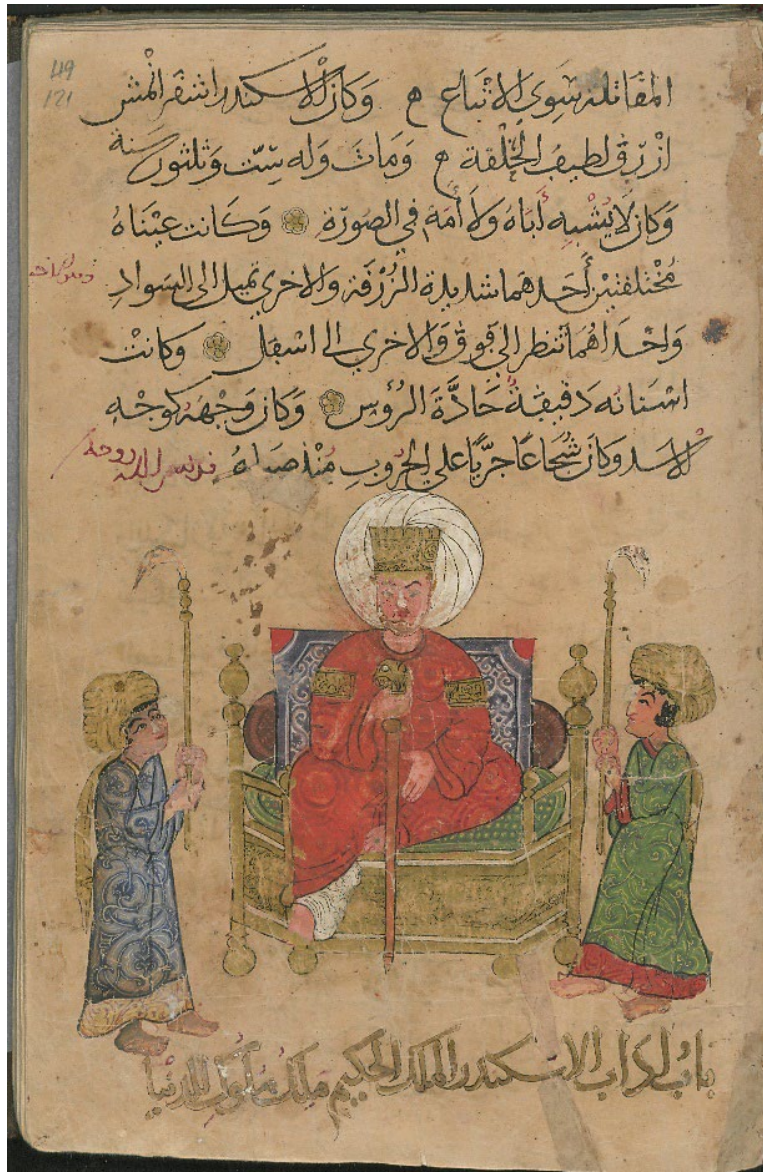 49
121
المقاتلة سوى الاتباع ه وكان الاسكندر اشقر انمش
ازرق لطيف الخلقة ه ومات وله ست وثلثون سنة
وكان لا يُشْبِه أباهُ ولا أمّه في الصورة وكانت عيناهُ
مُختلفتين أحدهما شديدة الزُرْقة والاخرى تميل الى السواد
واحداهما تنظر الى فوق والاخرى الى اسفل وكانت
اسنانه دقيقةً حادَّة الرُؤس وكان وجهه كوجْه
الاسد وكان شُجاعًا جريًّا على الحُروب مُنذ صباهُ قدس الله روحه
باب اداب الاسكندر الملك الحكيم ملك ملوك الدنيا